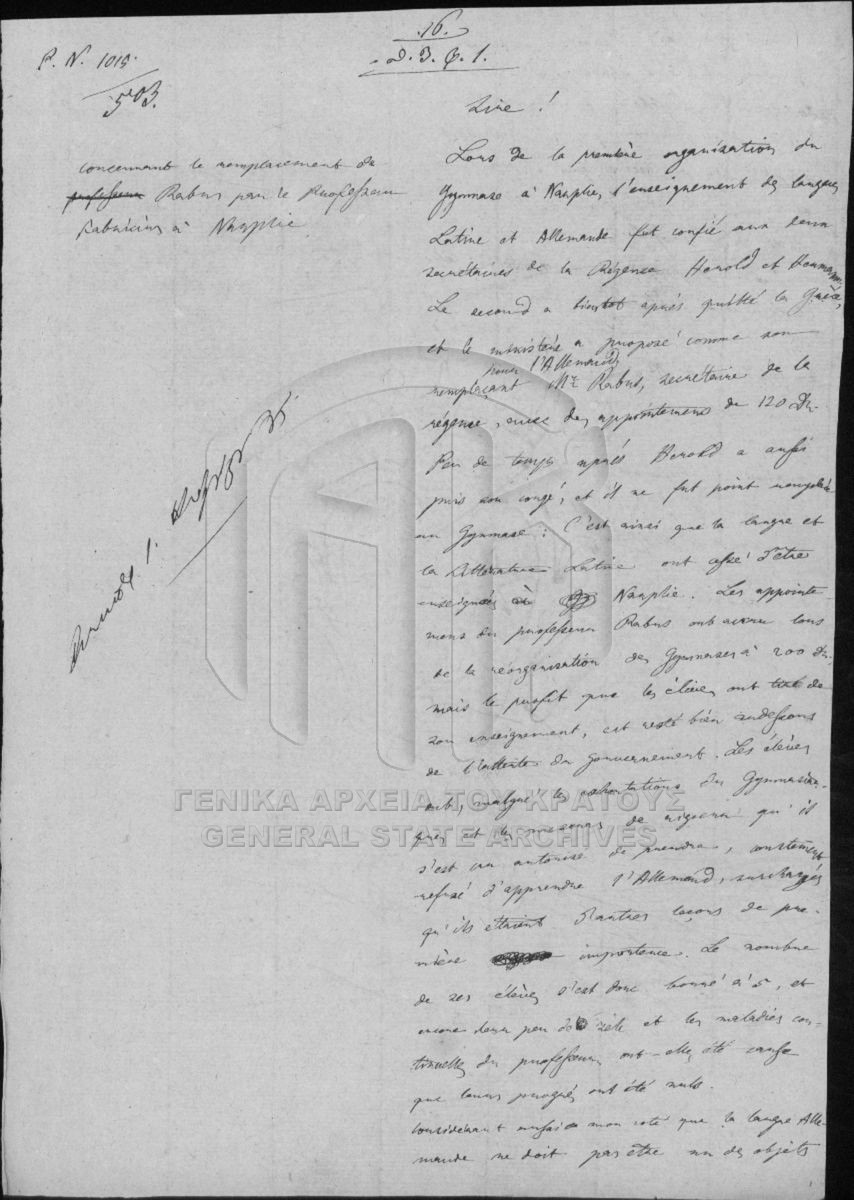 16.
P. N. 1015.
503.
Sire !
concernant le remplacement du
professeur Rabus par le Professeur
Fabricius à Nauplie
Lors de la première organisation du
Gymnase à Nauplie, l'enseignement des langues
Latine et Allemande fut confié aux deux
secrétaires de la Régence Herold et
Le second a bientot après quitté la Grèce,
et le ministère a proposé comme son
pour l'Allemand
remplaçant Mr. Rabus, secrétaire de la
régence, avec des appointemens de 120 Dr.
Peu de temps après Herold a aussi
pris son congé, et il ne fut point remplacé
au Gymnase : C'est ainsi que la langue et
la Littérature Latine ont cessé d'être
enseignées à Nauplie. Les appointe-
mens du professeur Rabus ont accru lors
de la réorganisation des Gymnases à 200 Dr.
mais le profit que les élèves ont tiré de
son enseignement, est resté bien audessous
de l'attente du gouvernement. Les élèves
ont, malgré les exhortations du Gymnasiar-
que, et les mesures de rigueur qu'il
s'est cru autorisé de prendre, constament
refusé d'apprendre l'Allemand, surchargés
qu'ils étaient d'autres leçons de pre-
mière importance. Le nombre
de ses élèves s'est donc borné à 5, et
encore leur peu de zèle et les maladies con-
tinuelles du professeur ont-elles été cause
que leurs progrès ont été nuls.
considérant aussi de mon coté que la langue Alle-
mande ne doit pas être un des objets
ΓΕΝΙΚΑ ΑΡΧΕΙΑ ΤΟΥ ΚΡΑΤΟΥΣ
GENERAL STATE ARCHIVES